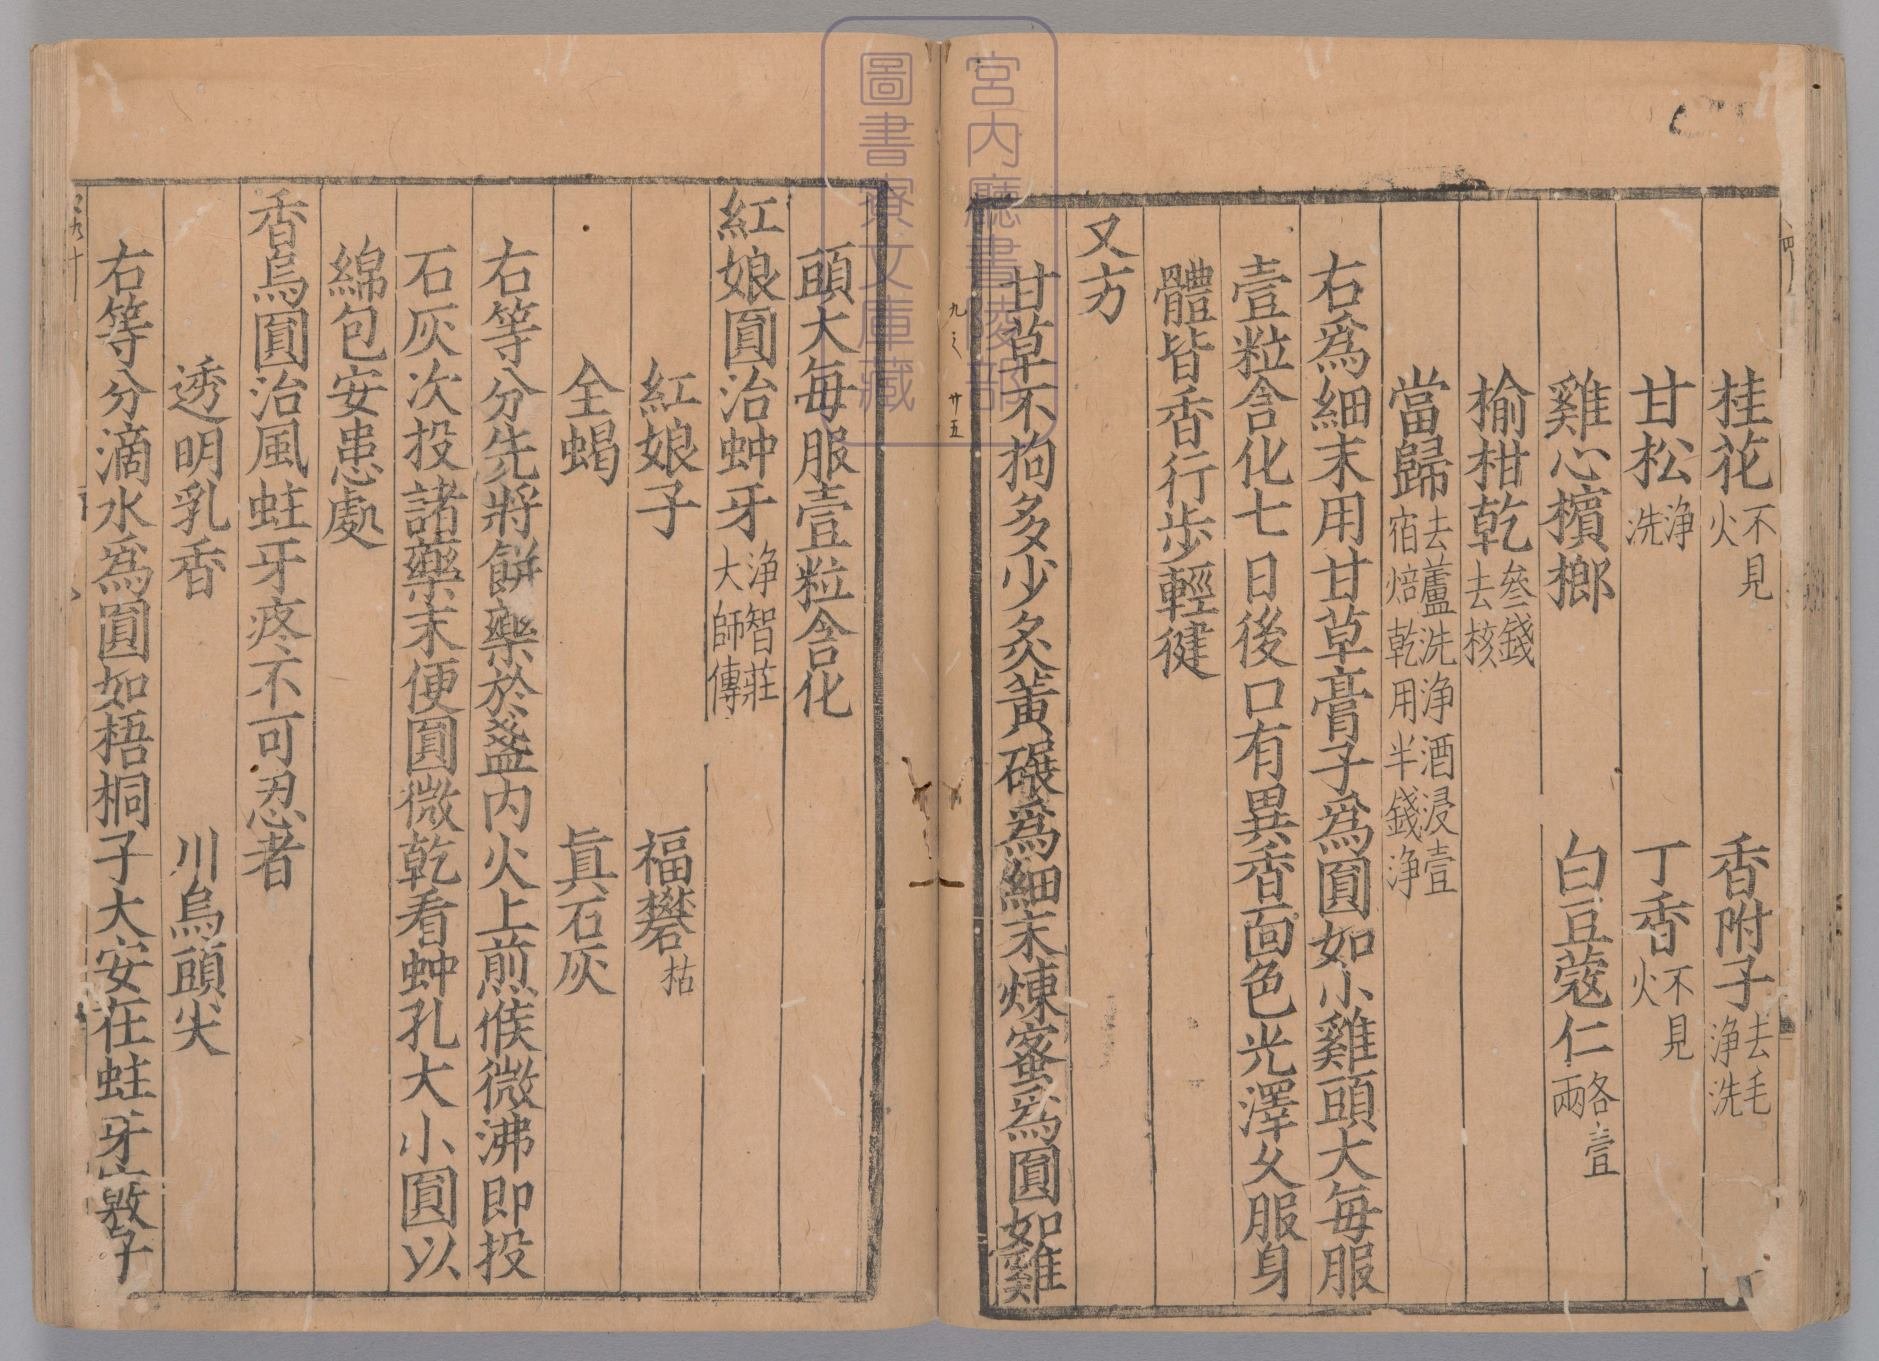 桂花不見火　香附子去毛淨洗
甘松淨洗　丁香不見火
雞心檳榔　白豆蔻仁各壹兩
榆柑乾叄錢去核
當歸去蘆洗淨酒浸壹宿焙乾用半錢淨
右爲細末用甘草膏子爲圓如小雞頭大每服
壹粒含化七日後口有異香面色光澤久服身
體皆香行步輕健
又方
甘草不拘多少炙黃碾爲細末煉蜜爲圓如雞
頭大每服壹粒含化
紅娘圓治蚛牙淨智莊大師傳
紅娘子　福礬枯
全蝎　眞石灰
右等分先將餅藥於盞內火上煎候微沸即投
石灰次投諸藥末便圓微乾看蚛孔大小圓以
綿包安患處
香烏圓治風蛀牙疼不可忍者
透明乳香　川烏頭尖
右等分滴水爲圓如梧桐子大安在蛀牙
九之　廿五
宮內廳書陵部
圖書寮文庫藏